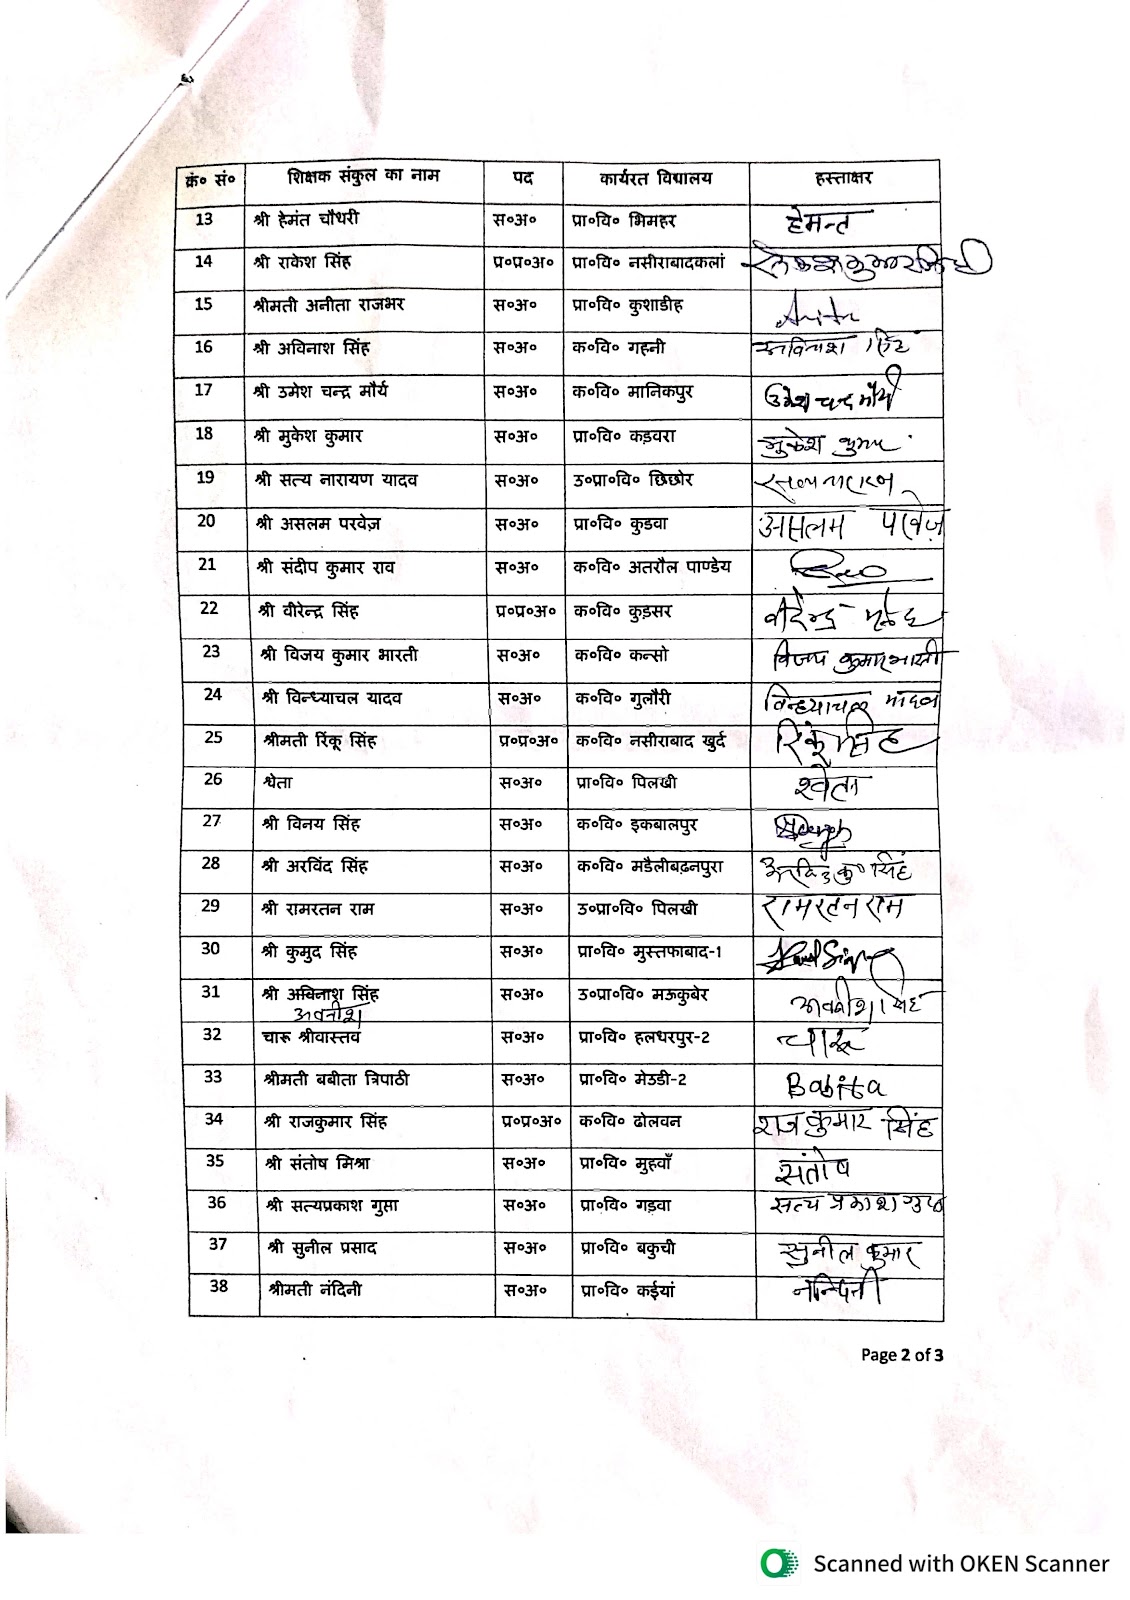 क्रं० सं० शिक्षक संकुल का नाम पद कार्यरत विद्यालय हस्ताक्षर
13 श्री हेमंत चौधरी स०अ० प्रा०वि० भिमहर हेमन्त
14 श्री राकेश सिंह प्र०प्र०अ० प्रा०वि० नसीराबादकलां
15 श्रीमती अनीता राजभर स०अ० प्रा०वि० कुशाडीह Anita
16 श्री अविनाश सिंह स०अ० क०वि० गहनी अविनाश सिंह
17 श्री उमेश चन्द्र मौर्य स०अ० क०वि० मानिकपुर उमेश चन्द्र मौर्य
18 श्री मुकेश कुमार स०अ० प्रा०वि० कड़वरा मुकेश कुमार
19 श्री सत्य नारायण यादव स०अ० उ०प्रा०वि० छिछोर सत्य नारायण
20 श्री असलम परवेज़ स०अ० प्रा०वि० कुडवा असलम परवेज़
21 श्री संदीप कुमार राव स०अ० क०वि० अतरौल पाण्डेय
22 श्री वीरेन्द्र सिंह प्र०प्र०अ० क०वि० कुड़सर वीरेन्द्र
23 श्री विजय कुमार भारती स०अ० क०वि० कन्सो विजय कुमार भारती
24 श्री विन्ध्याचल यादव स०अ० क०वि० गुलौरी विन्ध्याचल यादव
25 श्रीमती रिंकू सिंह प्र०प्र०अ० क०वि० नसीराबाद खुर्द रिंकू सिंह
26 श्वेता स०अ० प्रा०वि० पिलखी श्वेता
27 श्री विनय सिंह स०अ० क०वि० इकबालपुर
28 श्री अरविंद सिंह स०अ० क०वि० मडैलीबढ़नपुरा अरविंद कु० सिंह
29 श्री रामरतन राम स०अ० उ०प्रा०वि० पिलखी रामरतन राम
30 श्री कुमुद सिंह स०अ० प्रा०वि० मुस्तफाबाद-1
31 श्री अबिनाश सिंह स०अ० उ०प्रा०वि० मऊकुबेर अवनीश सिंह
अवनीश
32 चारू श्रीवास्तव स०अ० प्रा०वि० हलधरपुर-2 चारू
33 श्रीमती बबीता त्रिपाठी स०अ० प्रा०वि० मेउडी-2 Babita
34 श्री राजकुमार सिंह प्र०प्र०अ० क०वि० ढोलवन राजकुमार सिंह
35 श्री संतोष मिश्रा स०अ० प्रा०वि० मुहवाँ संतोष
36 श्री सत्यप्रकाश गुप्ता स०अ० प्रा०वि० गड़वा सत्य प्रकाश गुप्ता
37 श्री सुनील प्रसाद स०अ० प्रा०वि० बकुची सुनील कुमार
38 श्रीमती नंदिनी स०अ० प्रा०वि० कईयां नन्दिनी
Page 2 of 3
Scanned with OKEN Scanner